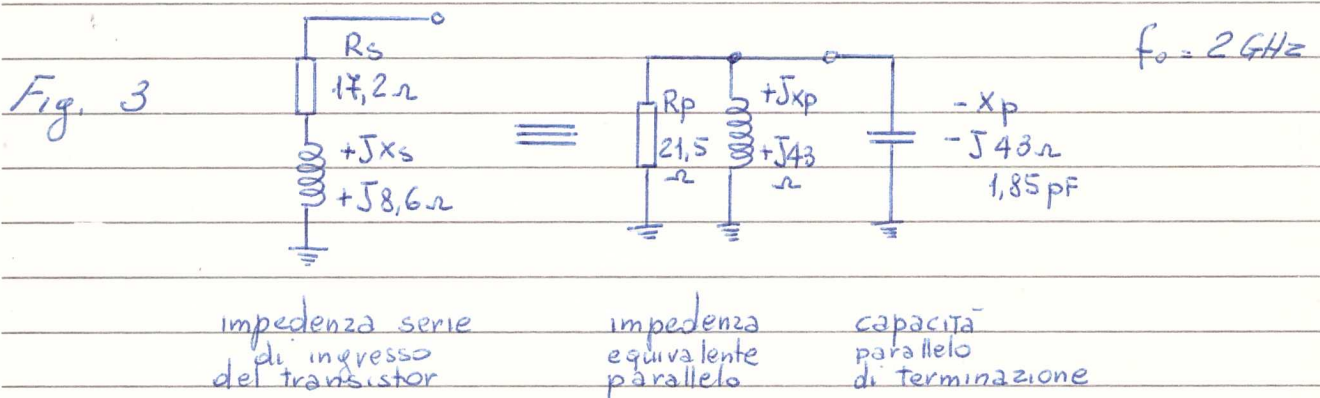 Fig. 3
f₀ = 2 GHz
Rs
17,2 Ω
+Jxs
+J8,6 Ω
Rp
21,5
Ω
+Jxp
+J43
Ω
- Xp
- J 43 Ω
1,85 pF
impedenza serie
di ingresso
del transistor
impedenza
equivalente
parallelo
capacità
parallelo
di terminazione